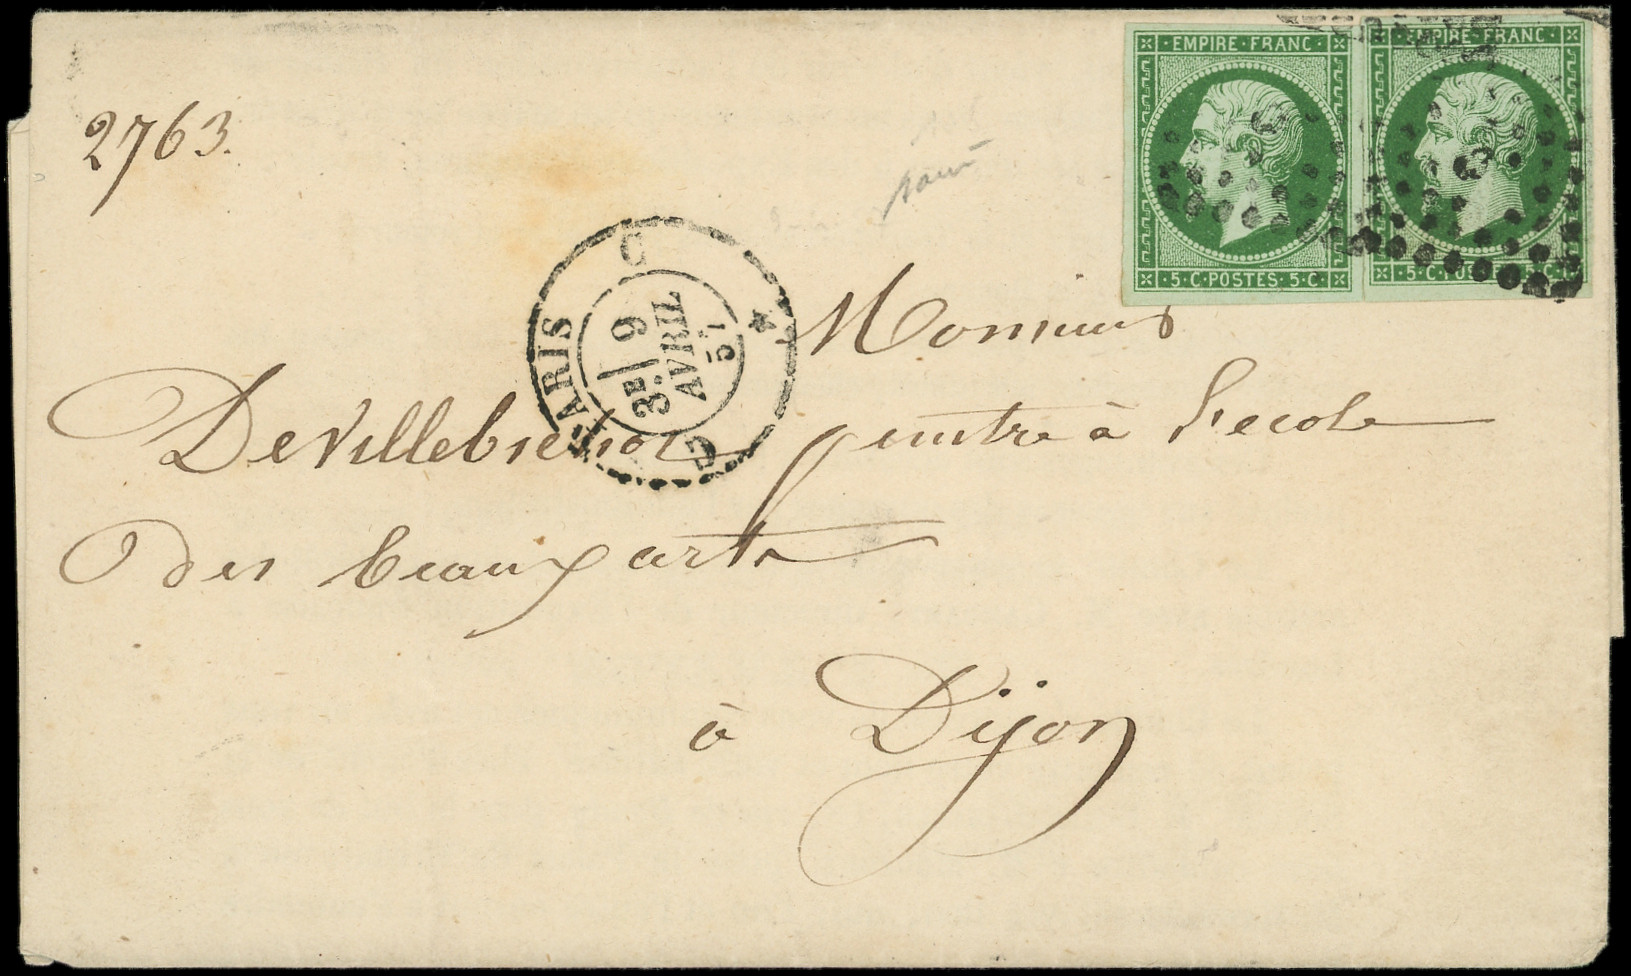 EMPIRE·FRANC EMPIRE·FRANC
5·C·POSTES·5·C· 5·C·POS
2763.
PARIS C
3E 9
AVRIL
57
Monsieur
peintre à l'ecole
des beaux arts
à Dijon